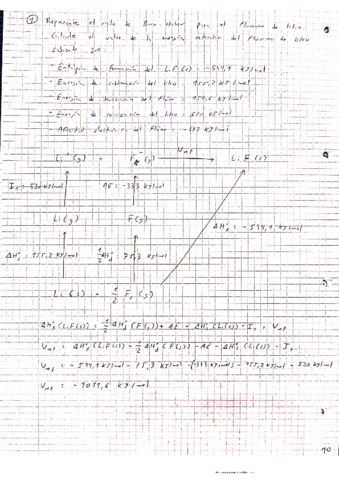 ① Represente el ciclo de Born-Haber para el fluoruro de litio
Calcule el valor de la energía reticular del fluoruro de litio
sabiendo que
- Entalpía de formación del LiF(s) = -594,1 kJ/mol
- Energía de sublimación del litio 155,2 kJ/mol
- Energía de disociación del flúor = 150,6 kJ/mol
- Energía de ionización del litio = 520 kJ/mol
- Afinidad electrónica del flúor = -333 kJ/mol
Li⁺(g) + F⁻(g) Uret LiF(s)
I₁ = 520 kJ/mol AE = -333 kJ/mol
Li(g) F(g)
ΔH°f = -594,1 kJ/mol
ΔH°s = 155,2 kJ/mol ½ΔH°d = 75,3 kJ/mol
Li(s) + ½ F₂(g)
ΔH°f (LiF(s)) = ½ΔH°d (F₂(g)) + AE + ΔH°s (Li(s)) + I₁ + Uret
Uret = ΔH°f (LiF(s)) - ½ΔH°d (F₂(g)) - AE - ΔH°s (Li(s)) - I₁
Uret = -594,1 kJ/mol - 75,3 kJ/mol - (-333 kJ/mol) - 155,2 kJ/mol - 520 kJ/mol
Uret = -1011,6 kJ/mol
10